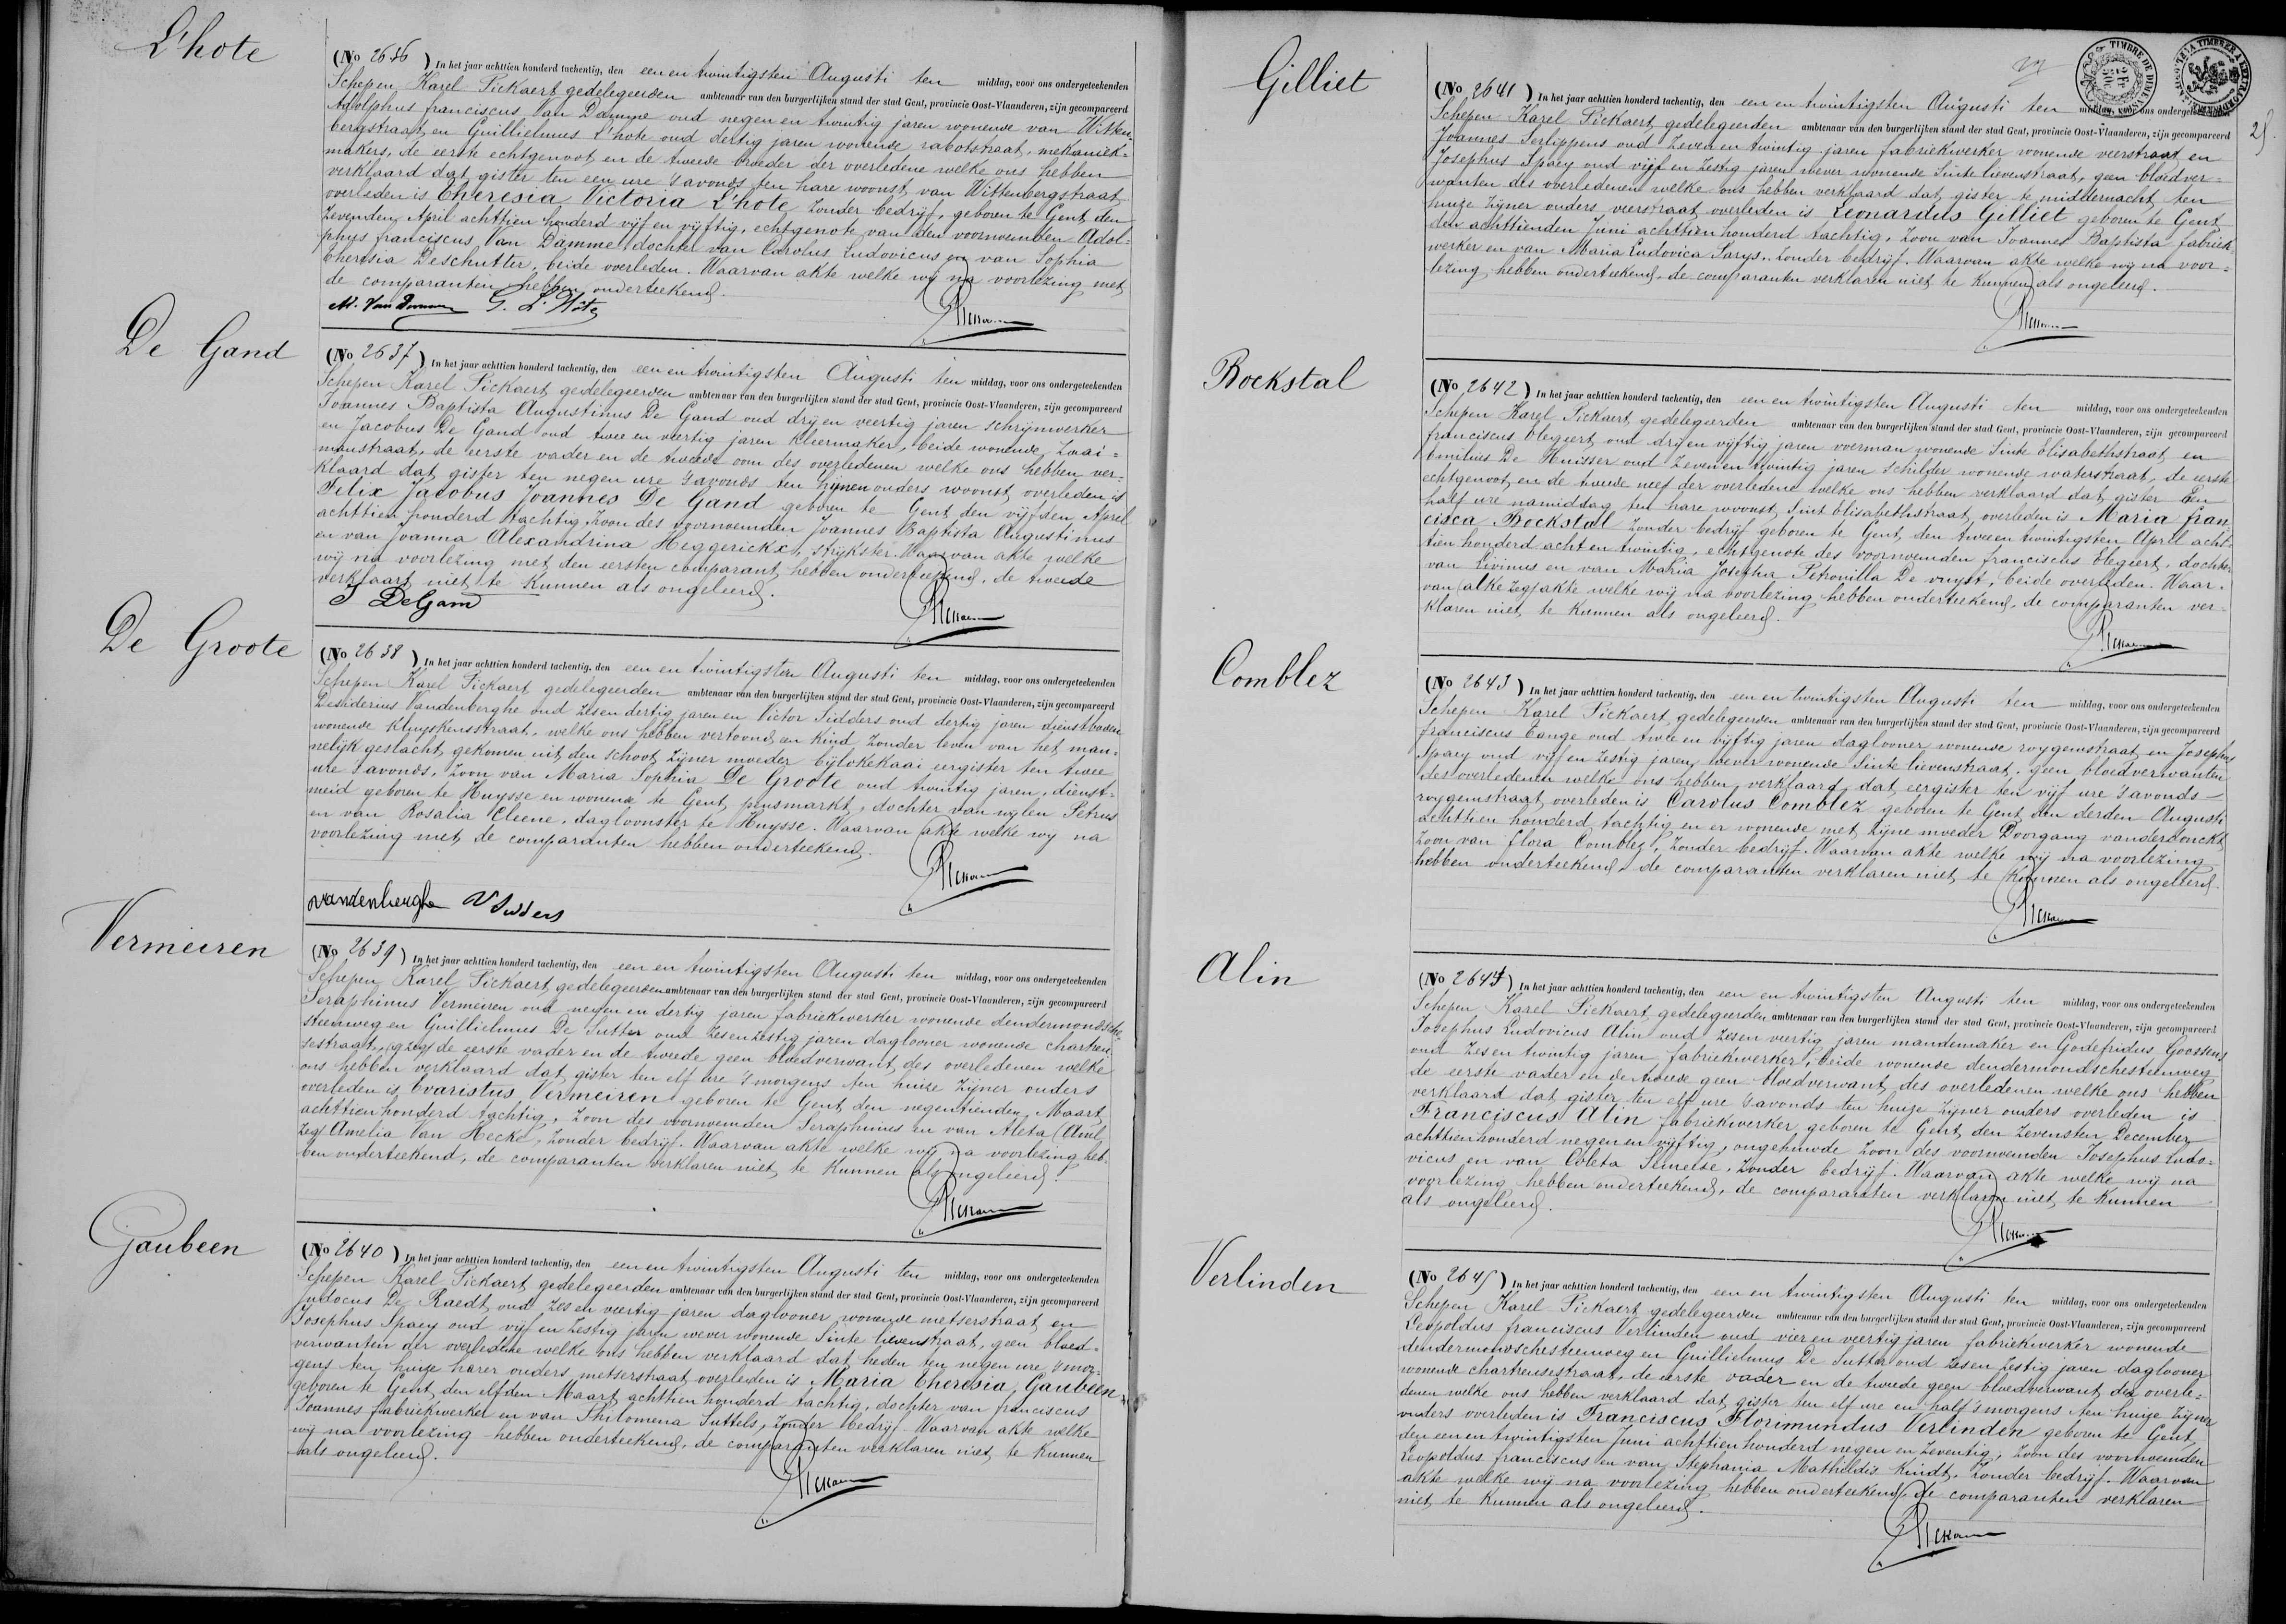 L'hote
(No 2636) In het jaar achttien honderd tachentig, den een en twintigsten Augusti ten middag, voor ons ondergeteekenden
Schepen Karel Pickaert gedelegeerden ambtenaar van den burgerlijken stand der stad Gent, provincie Oost-Vlaanderen, zijn gecompareerd
Adolphus franciscus Van Damme oud negen en twintig jaren wonende van Witten-
bergstraat en Guillielmus L'hote oud dertig jaren wonende rabotstraat, mekaniek-
makers, de eerste echtgenoot en de tweede broeder der overledene welke ons hebben
verklaard dat gister ten een ure 's avonds ten hare woonst van Wittenbergstraat
overleden is Theresia Victoria L'hote zonder bedrijf, geboren te Gent den
zevenden April achttien honderd vijf en vijftig, echtgenote van den voornoemden Adol-
phus franciscus Van Damme dochter van Carolus Ludovicus en van Sophia
theresia Deschutter, beide overleden. Waarvan akte welke wij na voorlezing met
de comparanten hebben onderteekend.
Ad. Van Damme G. L'Hôte
De Gand
(No 2637) In het jaar achttien honderd tachentig, den een en twintigsten Augusti ten middag, voor ons ondergeteekenden
Schepen Karel Pickaert gedelegeerden ambtenaar van den burgerlijken stand der stad Gent, provincie Oost-Vlaanderen, zijn gecompareerd
Joannes Baptista Augustinus De Gand oud drij en veertig jaren schrijnwerker
en Jacobus De Gand oud twee en veertig jaren kleermaker, beide wonende Zwai-
manstraat, de eerste vader en de tweede oom des overledenen welke ons hebben ver-
klaard dat gister ten negen ure 's avonds ten zijnen ouders woonst overleden is
Felix Jacobus Joannes De Gand geboren te Gent den vijfden April
achttien honderd tachtig, zoon des voornoemden Joannes Baptista Augustinus
en van Joanna Alexandrina Heggerickx, strijkster. Waarvan akte welke
wij na voorlezing met den eersten comparant hebben onderteekend, de tweede
verklaart niet te kunnen als ongeleerd.
J DeGand
De Groote
(No 2638) In het jaar achttien honderd tachentig, den een en twintigsten Augusti ten middag, voor ons ondergeteekenden
Schepen Karel Pickaert gedelegeerden ambtenaar van den burgerlijken stand der stad Gent, provincie Oost-Vlaanderen, zijn gecompareerd
Desiderius Vandenberghe oud zes en dertig jaren en Victor Sidders oud dertig jaren dienstboden
wonende Kluyskensstraat, welke ons hebben vertoond een kind zonder leven van het man-
nelijk geslacht, gekomen uit den schoot zijner moeder bijlokekaai eergister ten twee
ure 's avonds, zoon van Maria Sophia De Groote oud twintig jaren, dienst-
meid geboren te Huysse en wonende te Gent, pensmarkt, dochter van wijlen Petrus
en van Rosalia Cleene, dagloonster te Huysse. Waarvan akte welke wij na
voorlezing met de comparanten hebben onderteekend.
Dvandenberghe V Sidders
Vermeiren
(No 2639) In het jaar achttien honderd tachentig, den een en twintigsten Augusti ten middag, voor ons ondergeteekenden
Schepen Karel Pickaert gedelegeerden ambtenaar van den burgerlijken stand der stad Gent, provincie Oost-Vlaanderen, zijn gecompareerd
Seraphinus Vermeiren oud negen en dertig jaren fabriekwerker wonende dendermondsche
steenweg en Guillielmus De Sutter oud zes en zestig jaren daglooner wonende chartreu-
sestraat, de eerste vader en de tweede geen bloedverwant des overledenen welke
ons hebben verklaard dat gister ten elf ure 's morgens ten huize zijner ouders
overleden is Evaristus Vermeiren geboren te Gent den negentienden Maart
achttien honderd tachtig, zoon des voornoemden Seraphinus en van Aleta (Amel
zegt Amelia Van Hecke, zonder bedrijf. Waarvan akte welke wij na voorlezing heb-
ben onderteekend, de comparanten verklaren niet te kunnen als ongeleerd.
Gaubeen
(No 2640) In het jaar achttien honderd tachentig, den een en twintigsten Augusti ten middag, voor ons ondergeteekenden
Schepen Karel Pickaert gedelegeerden ambtenaar van den burgerlijken stand der stad Gent, provincie Oost-Vlaanderen, zijn gecompareerd
Judocus De Raedt oud zes en veertig jaren daglooner wonende metserstraat en
Josephus Spaey oud vijf en zestig jaren wever wonende Sinte lievenstraat, geen bloed-
verwanten der overledene welke ons hebben verklaard dat heden ten negen ure 's mor-
gens ten huize harer ouders metserstraat overleden is Maria Theresia Gaubeen
geboren te Gent den elfden Maart achttien honderd tachtig, dochter van franciscus
Joannes fabriekwerker en van Philomena Suttels, zonder bedrijf. Waarvan akte welke
wij na voorlezing hebben onderteekend, de comparanten verklaren niet te kunnen
als ongeleerd.
Gilliet
(No 2641) In het jaar achttien honderd tachentig, den een en twintigsten Augusti ten middag, voor ons ondergeteekenden
Schepen Karel Pickaert gedelegeerden ambtenaar van den burgerlijken stand der stad Gent, provincie Oost-Vlaanderen, zijn gecompareerd
Joannes Serlippens oud zeven en twintig jaren fabriekwerker wonende veerstraat en
Josephus Spaey oud vijf en zestig jaren wever wonende Sinte lievenstraat, geen bloedver-
wanten des overledenen welke ons hebben verklaard dat gister te middernacht ten
huize zijner ouders veerstraat overleden is Leonardus Gilliet geboren te Gent
den achttienden Juni achttien honderd tachtig, zoon van Joannes Baptista fabriek-
werker en van Maria Ludovica Sarys, zonder bedrijf. Waarvan akte welke wij na voor-
lezing hebben onderteekend, de comparanten verklaren niet te kunnen als ongeleerd.
Bockstal
(No 2642) In het jaar achttien honderd tachentig, den een en twintigsten Augusti ten middag, voor ons ondergeteekenden
Schepen Karel Pickaert gedelegeerden ambtenaar van den burgerlijken stand der stad Gent, provincie Oost-Vlaanderen, zijn gecompareerd
franciscus Elegiert oud drij en vijftig jaren voerman wonende Sinte Elisabethstraat en
Emilius De Huisser oud zeven en twintig jaren schilder wonende waterstraat, de eerste
echtgenoot en de tweede neef der overledene welke ons hebben verklaard dat gister ten
half ure namiddag ten hare woonst, Sint Elisabethstraat, overleden is Maria fran-
cisca Bockstal zonder bedrijf geboren te Gent, den twee en twintigsten April acht-
tien honderd acht en twintig, echtgenote des voornoemden franciscus Elegiert, dochter
van Livinus en van Maria Josepha Petronilla De vuyst, beide overleden. Waar-
van (alke zegt) akte welke wij na voorlezing hebben onderteekend, de comparanten ver-
klaren niet te kunnen als ongeleerd.
Comblez
(No 2643) In het jaar achttien honderd tachentig, den een en twintigsten Augusti ten middag, voor ons ondergeteekenden
Schepen Karel Pickaert gedelegeerden ambtenaar van den burgerlijken stand der stad Gent, provincie Oost-Vlaanderen, zijn gecompareerd
franciscus Tange oud twee en vijftig jaren daglooner wonende roygemstraat en Josephus
Spaey oud vijf en zestig jaren, wever wonende Sinte lievenstraat, geen bloedverwanten
des overledenen welke ons hebben verklaard dat eergister ten vijf ure 's avonds
roygemstraat overleden is Carolus Comblez geboren te Gent den derden Augusti
achttien honderd tachtig en er wonende met zijne moeder Doorgang vanderdonckt
zoon van flora Comblez, zonder bedrijf. Waarvan akte welke wij na voorlezing
hebben onderteekend, de comparanten verklaren niet te kunnen als ongeleerd.
Alin
(No 2644) In het jaar achttien honderd tachentig, den een en twintigsten Augusti ten middag, voor ons ondergeteekenden
Schepen Karel Pickaert gedelegeerden ambtenaar van den burgerlijken stand der stad Gent, provincie Oost-Vlaanderen, zijn gecompareerd
Josephus Ludovicus Alin oud zes en veertig jaren mandemaker en Godefridus Goossens
oud zes en twintig jaren, fabriekwerker, beide wonende dendermondschesteenweg
de eerste vader en de tweede geen bloedverwant des overledenen welke ons hebben
verklaard dat gister ten elf ure 's avonds ten huize zijner ouders overleden is
Franciscus Alin fabriekwerker geboren te Gent, den zevensten December
achttien honderd negen en vijftig, ongehuwde zoon des voornoemden Josephus Ludo-
vicus en van Coleta Simelse, zonder bedrijf. Waarvan akte welke wij na
voorlezing hebben onderteekend, de comparanten verklaren niet te kunnen
als ongeleerd.
Verlinden
(No 2645) In het jaar achttien honderd tachentig, den een en twintigsten Augusti ten middag, voor ons ondergeteekenden
Schepen Karel Pickaert gedelegeerden ambtenaar van den burgerlijken stand der stad Gent, provincie Oost-Vlaanderen, zijn gecompareerd
Leopoldus franciscus Verlinden oud vier en veertig jaren fabriekwerker wonende
dendermondschesteenweg en Guillielmus De Sutter oud zes en zestig jaren daglooner
wonende chartreusestraat, de eerste vader en de tweede geen bloedverwant des overle-
denen welke ons hebben verklaard dat gister ten elf ure en half 's morgens ten huize zijner
ouders overleden is Franciscus Florimundus Verlinden geboren te Gent
den een en twintigsten Juni achttien honderd negen en zeventig, zoon des voornoemden
Leopoldus franciscus en van Stephania Mathildis Kindt, zonder bedrijf. Waarvan
akte welke wij na voorlezing hebben onderteekend, de comparanten verklaren
niet te kunnen als ongeleerd.